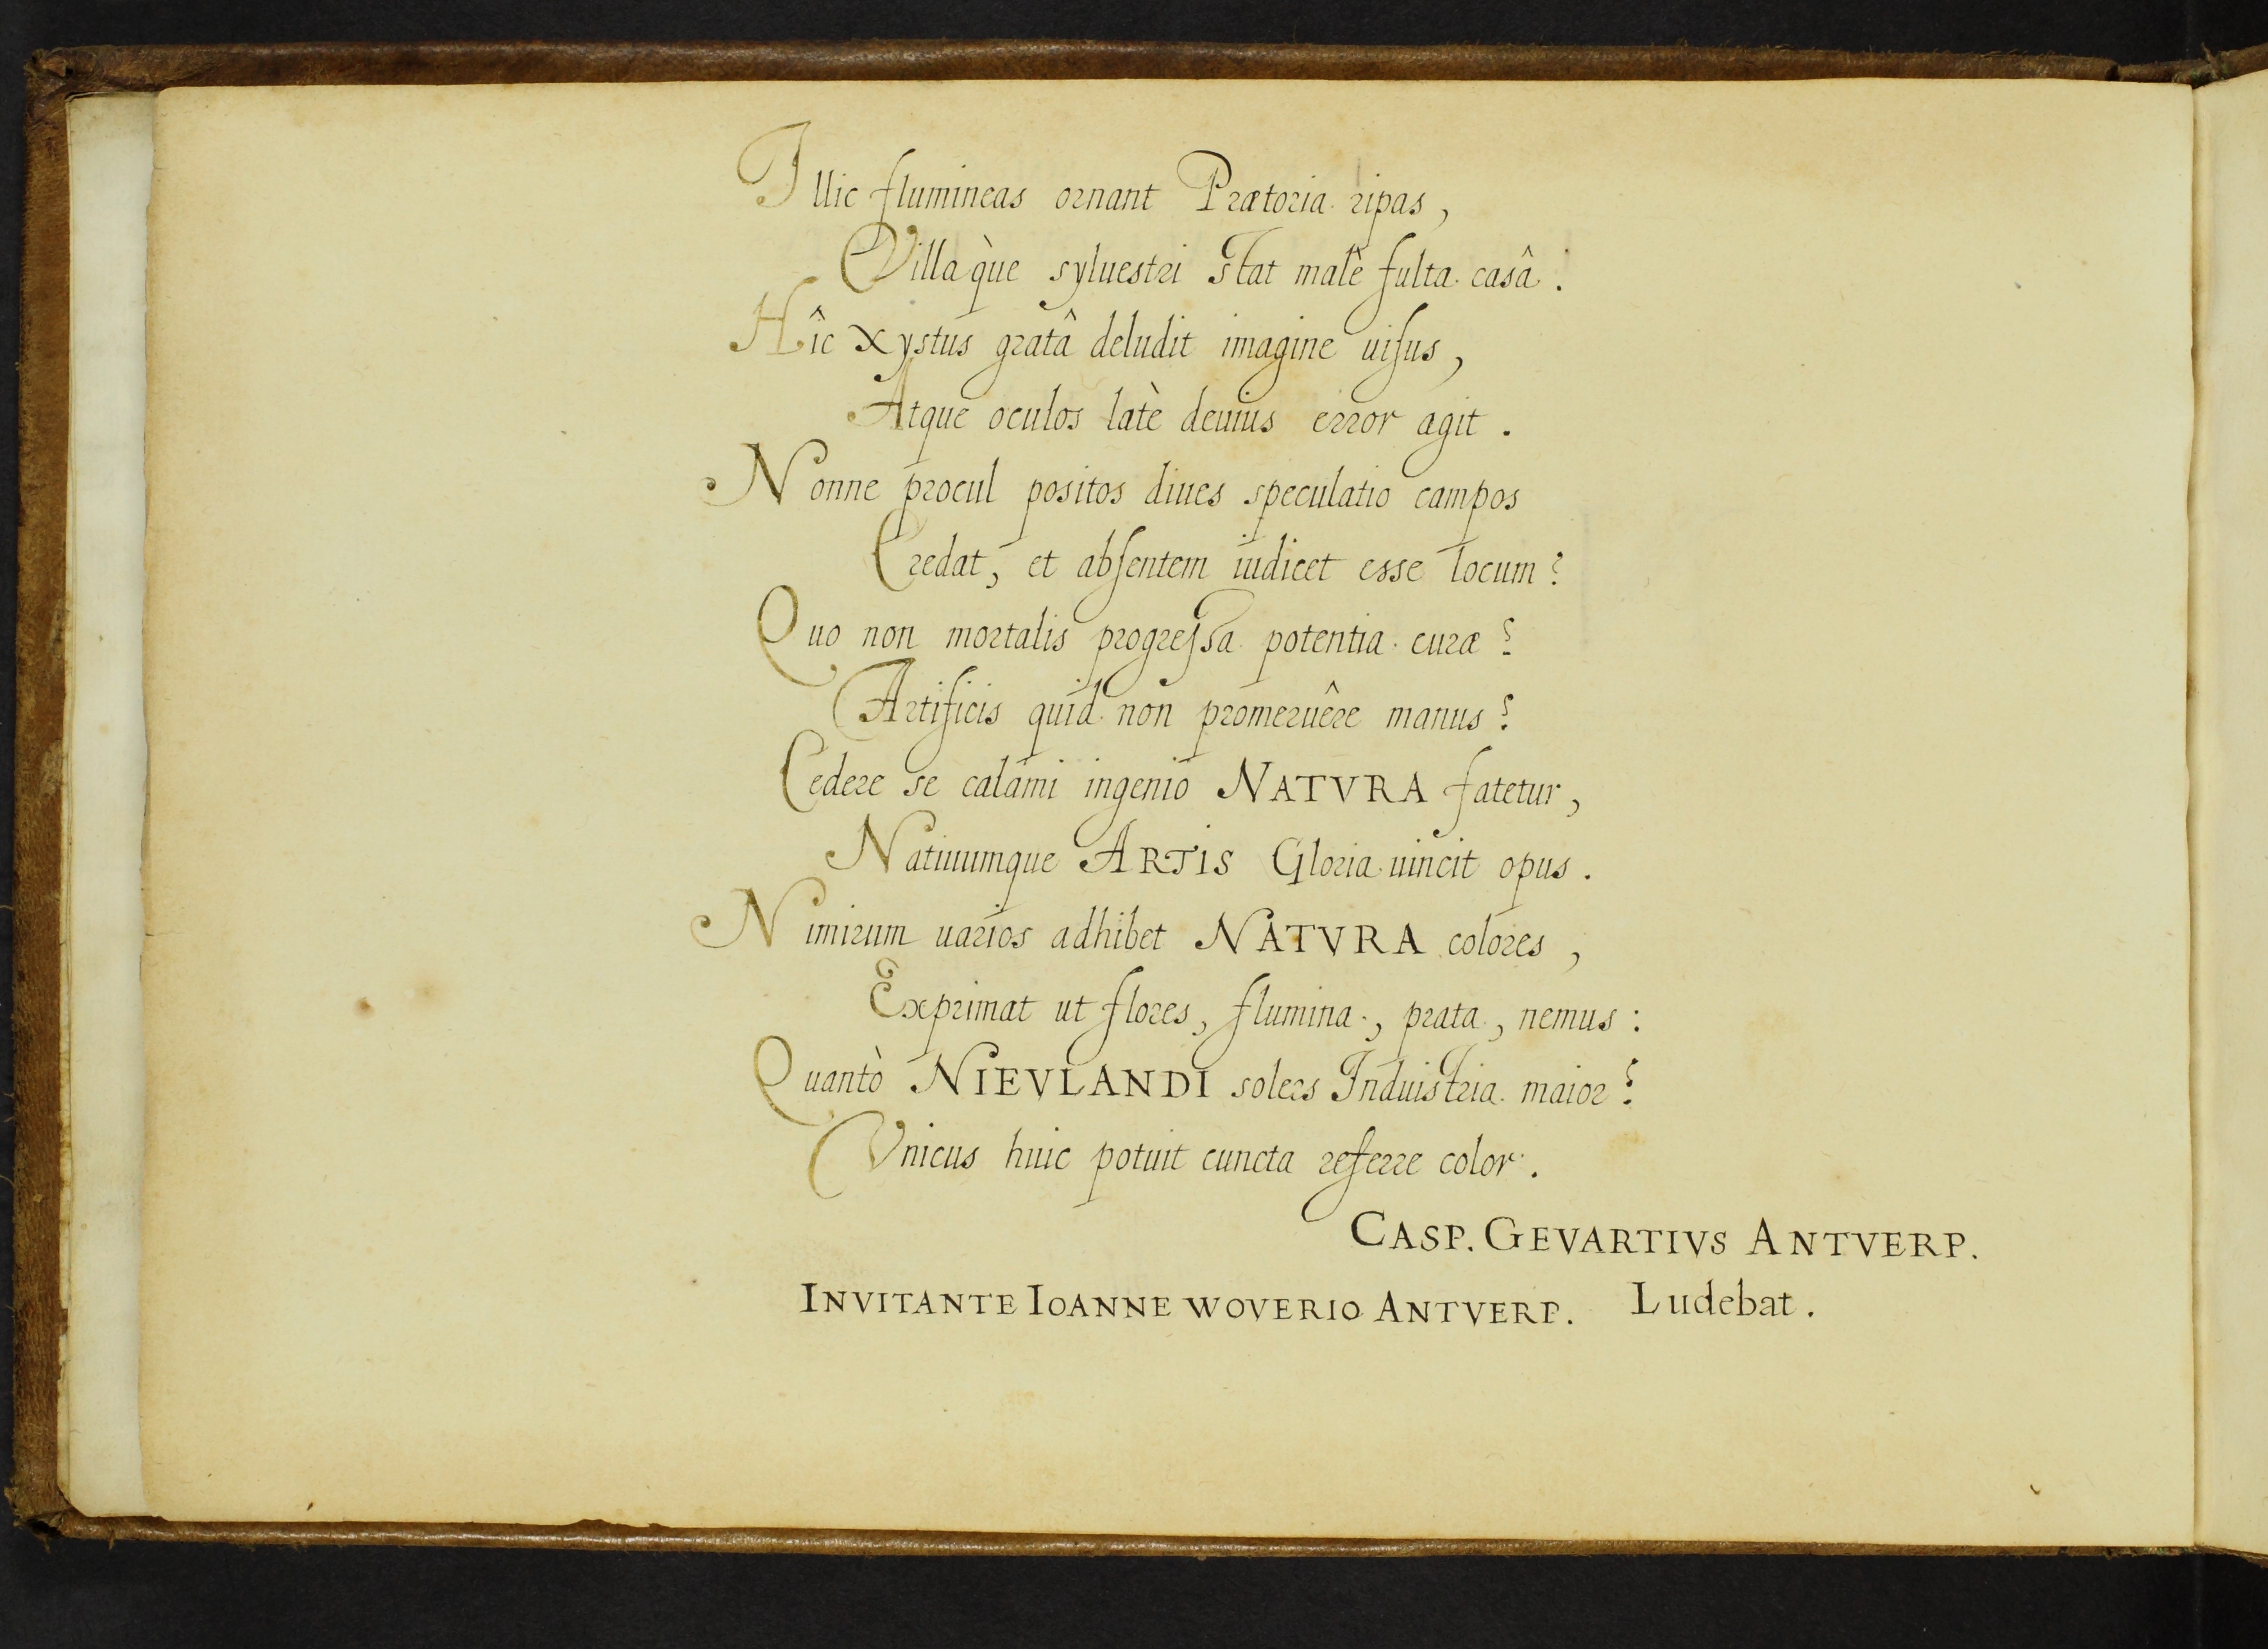 Illic flumineas ornant Prætoria ripas,
Villaq̀ue syluestri stat malè fulta casâ.
Hîc xystus gratâ deludit imagine uisus,
Atque oculos latè deuius error agit.
Nonne procul positos diues speculatio campos
Credat, et absentem iudicet esse locum?
Quo non mortalis progressa potentia curæ?
Artificis quid non promeruêre manus?
Cedere se calami ingenio NATVRA fatetur,
Natiuumque ARTIS Gloria uincit opus.
Nimirum uarios adhibet NATVRA colores,
Exprimat ut flores, flumina, prata, nemus:
Quantò NIEVLANDI solers Induistria maior?
Vnicus huic potuit cuncta referre color.
CASP. GEVARTIVS ANTVERP.
INVITANTE IOANNE WOVERIO ANTVERP. Ludebat.